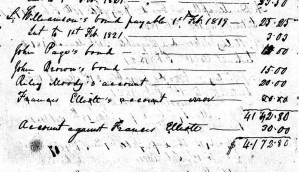 Williamson's bond payable 1st Feb. 1819 — 25.25
int to 1st Feb 1821 — 3.03
John Page's bond — 10.00
John Brown's bond — 15.00
Riley Moody's account — 20.00
Frances Elliott's account — error
4142.80
Account against Frances Elliott — 30.00
$ 4172.80